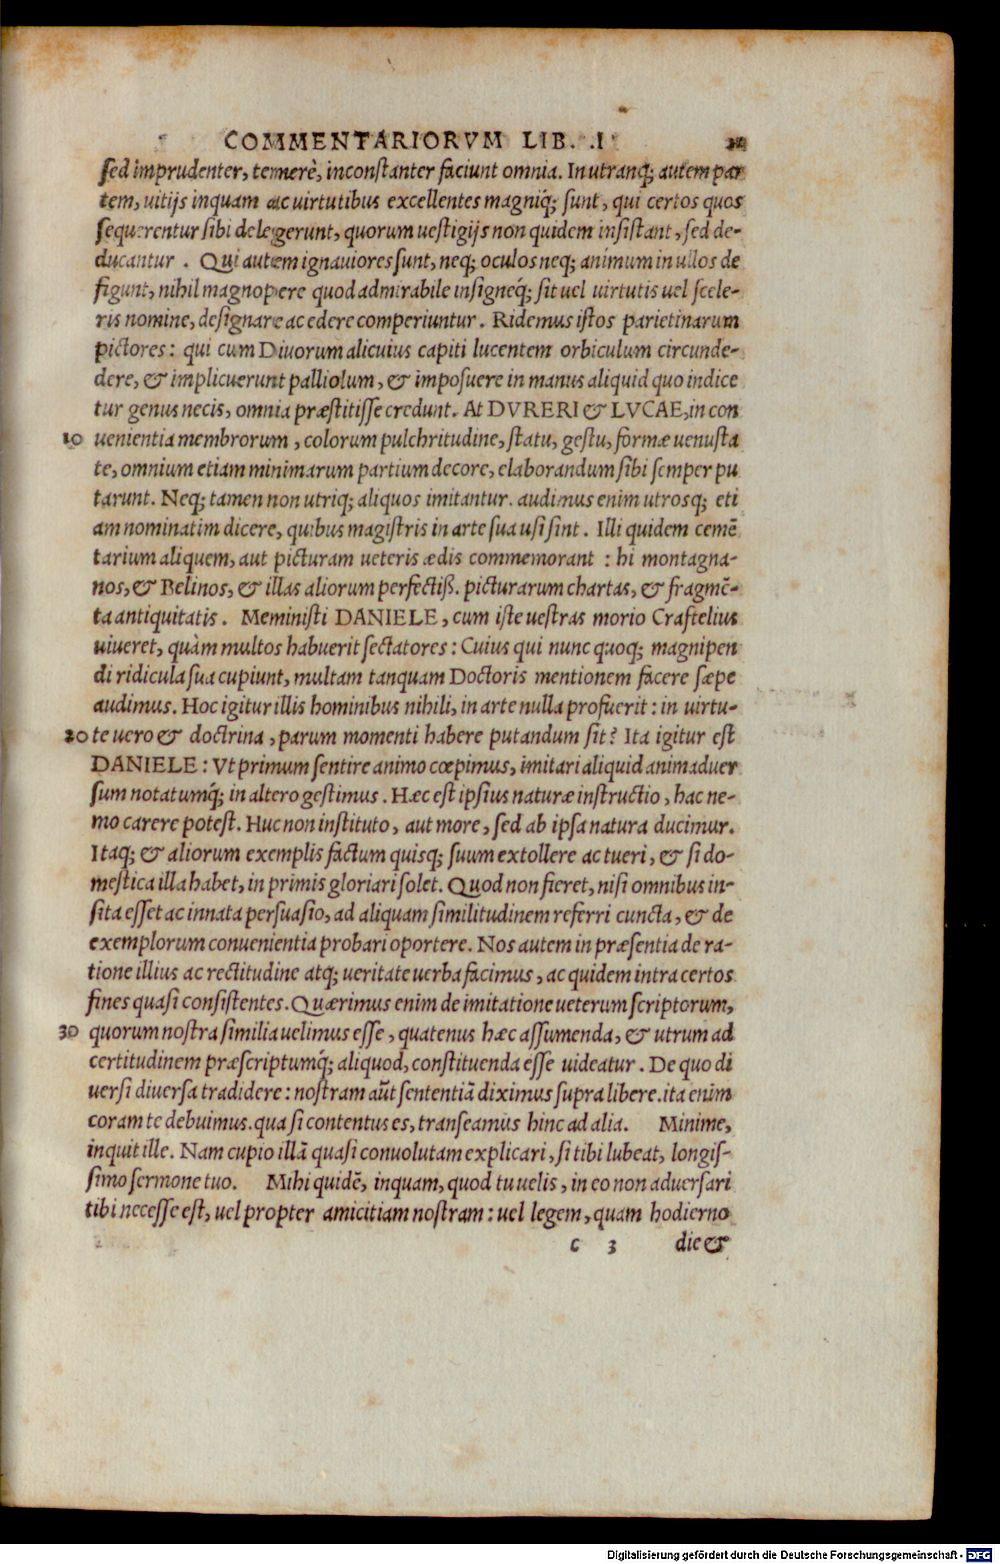 COMMENTARIORVM LIB. I
sed imprudenter, temerè, inconstanter faciunt omnia. In utranq; autem par
tem, uitijs inquam ac uirtutibus excellentes magniq́; sunt, qui certos quos
sequerentur sibi delegerunt, quorum uestigijs non quidem insistant, sed de-
ducantur. Qui autem ignauiores sunt, neq; oculos neq; animum in ullos de
figunt, nihil magnopere quod admirabile insigneq́; sit uel uirtutis uel scele-
ris nomine, designare ac edere comperiuntur. Ridemus istos parietinarum
pictores: qui cum Diuorum alicuius capiti lucentem orbiculum circunde-
dere, & implicuerunt palliolum, & imposuere in manus aliquid quo indice
tur genus necis, omnia præstitisse credunt. At DVRERI & LVCAE, in con
10 uenientia membrorum, colorum pulchritudine, statu, gestu, formæ uenusta
te, omnium etiam minimarum partium decore, elaborandum sibi semper pu
tarunt. Neq; tamen non utriq; aliquos imitantur. audimus enim utrosq; eti
am nominatim dicere, quibus magistris in arte sua usi sint. Illi quidem cemē
tarium aliquem, aut picturam ueteris ædis commemorant: hi montagna-
nos, & Belinos, & illas aliorum perfectiß. picturarum chartas, & fragmē-
ta antiquitatis. Meministi DANIELE, cum iste uestras morio Craftelius
uiueret, quàm multos habuerit sectatores: Cuius qui nunc quoq; magnipen
di ridicula sua cupiunt, multam tanquam Doctoris mentionem facere sæpe
audimus. Hoc igitur illis hominibus nihili, in arte nulla profuerit: in uirtu-
20 te uero & doctrina, parum momenti habere putandum sit? Ita igitur est
DANIELE: Vt primum sentire animo cœpimus, imitari aliquid animaduer
sum notatumq́; in altero gestimus. Hæc est ipsius naturæ instructio, hac ne-
mo carere potest. Huc non instituto, aut more, sed ab ipsa natura ducimur.
Itaq; & aliorum exemplis factum quisq; suum extollere ac tueri, & si do-
mestica illa habet, in primis gloriari solet. Quod non fieret, nisi omnibus in-
sita esset ac innata persuasio, ad aliquam similitudinem referri cuncta, & de
exemplorum conuenientia probari oportere. Nos autem in præsentia de ra-
tione illius ac rectitudine atq; ueritate uerba facimus, ac quidem intra certos
fines quasi consistentes. Quærimus enim de imitatione ueterum scriptorum,
30 quorum nostra similia uelimus esse, quatenus hæc assumenda, & utrum ad
certitudinem præscriptumq́; aliquod, constituenda esse uideatur. De quo di
uersi diuersa tradidere: nostram aūt sententiā diximus supra libere. ita enim
coram te debuimus. qua si contentus es, transeamus hinc ad alia. Minime,
inquit ille. Nam cupio illā quasi conuolutam explicari, si tibi lubeat, longis-
simo sermone tuo. Mihi quidē, inquam, quod tu uelis, in eo non aduersari
tibi necesse est, uel propter amicitiam nostram: uel legem, quam hodierno
c 3 die &
Digitalisierung gefördert durch die Deutsche Forschungsgemeinschaft - DFG